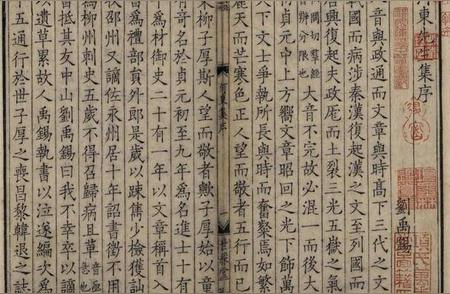 東先生集序
劉禹錫
音與政通而文章與時高下三代之文
國而病涉秦漢復起漢之文至列國而
興復起夫政厖而土裂三光五嶽之氣
大音不完故必混一而後大
貞元中上方嚮文章昭回之光下飾萬
下文士爭執所長與時而奮粲焉如繁
天而芒寒色正人望而敬者五行而已
東集序
東柳子厚斯人望而敬者歟子厚始以童
有奇名於貞元初至九年爲名進士十有
爲材御史二十有一年以文章稱首入
爲禮部員外郎是歲以疎雋少檢獲訕
牧邵州又謫佐永州居十年詔書徵不用
爲柳州刺史五歲不得召歸病且革
書抵其友中山劉禹錫曰我不幸卒以謫
遺草累故人禹錫執書以泣遂編次爲
十五通行於世子厚之喪昌黎韓退之誌